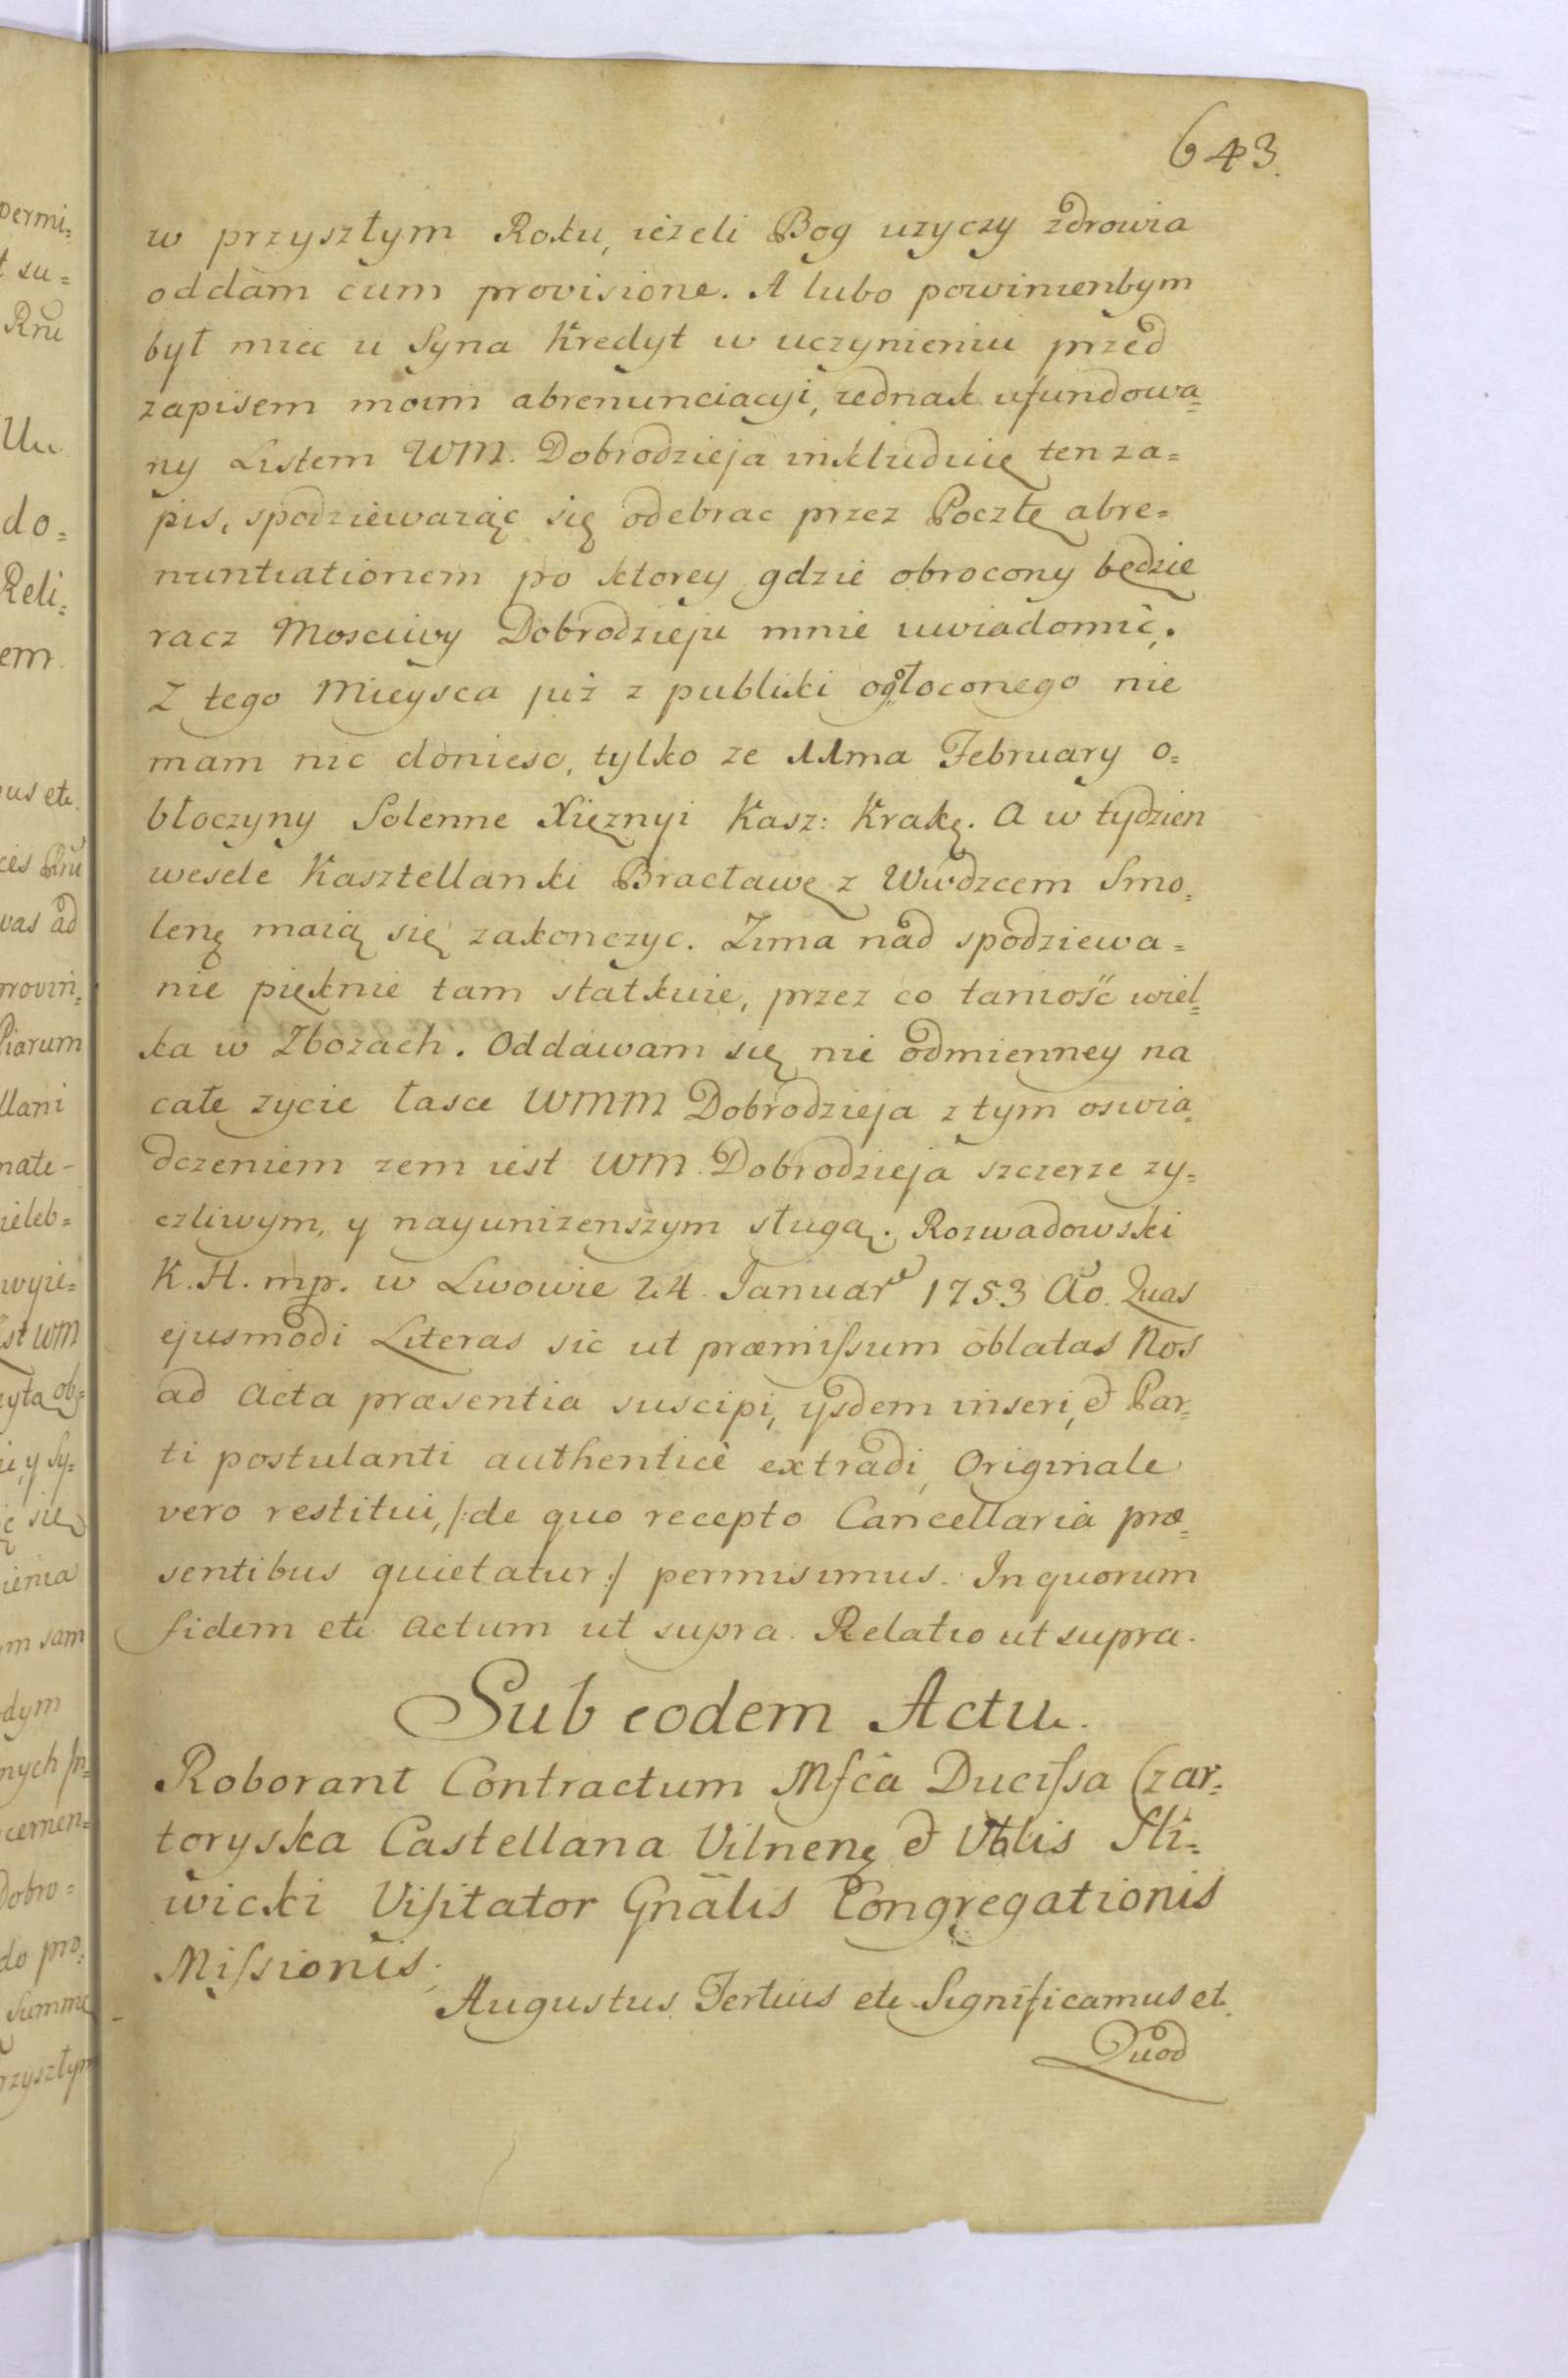 643.
w przyszłym Roku, ieżeli Bog uzyczy zdrowia
oddam cum provisione. A lubo powinienbym
był miec u Syna Kredyt w uczynieniu przed
zapisem moim abrenunciacyi, iednak ufundowa=
ny Listem WM. Dobrodzieja inkluduię ten za=
pis, spodziewaiąc się odebrac przez Pocztę abre=
nuntiationem po ktorey gdzie obrocony będzie
racz Mosciwy Dobrodzieju mnie uwiadomić.
Z tego Mieysca już z publiki ogołoconego nie
mam nic doniesc, tylko ze 11ma February o=
błoczyny Solenne Xiężnyi Kasz: Krakę. A w tydzien
wesele Kasztellanki Bracławę z Wwdzcem Smo=
lenę maią się zakonczyc. Zima nad spodziewa=
nie pięknie tam statkuie, przez co taniość wiel=
ka w Zbozach. Oddawam się nie odmienney na
całe zycie łasce WMM Dobrodzieja z tym oswia=
dczeniem zem iest WM. Dobrodzieja szczerze zy=
czliwym, y nayunizenszym sługą. Rozwadowski
K. H. mp. w Lwowie 24. Januar 1753 Ao. Quas
ejusmodi Literas sic ut præmissum oblatas Nos
ad Acta præsentia suscipi, ysdem inseri, et Par=
ti postulanti authenticè extradi, Originale
vero restitui, /:de quo recepto Cancellaria præ=
sentibus quietatur:/ permisimus. In quorum
fidem etc Actum ut supra. Relatio ut supra.
Sub eodem Actu.
Roborant Contractum Mfca Ducissa Czar=
toryska Castellana Vilnenę et Vblis Sli=
wicki Visitator Gnalis Congregationis
Missionis.
Augustus Tertius etc Significamus et.
Quod
permi=
t su=
Rnu
do=
Reli=
em.
us etc.
ces Rnu
vas ad
provin=
Piarum
llani
nate-
ieleb=
wyie=
st WM
eyta ob=
ie, y Sy=
ć się
ienia
m sam
dym
nych
cemen=
Dobro=
do pro=
Summę
rzyszłym